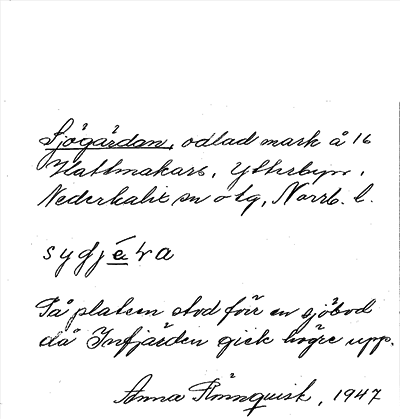 Sjögårdan, odlad mark å 16
Hattmakars, Ytterbyn,
Nederkalix sn o tg, Norrb. l.
På platsen stod förr en sjöbod
då Infjärden gick högre upp.
Anna 1947